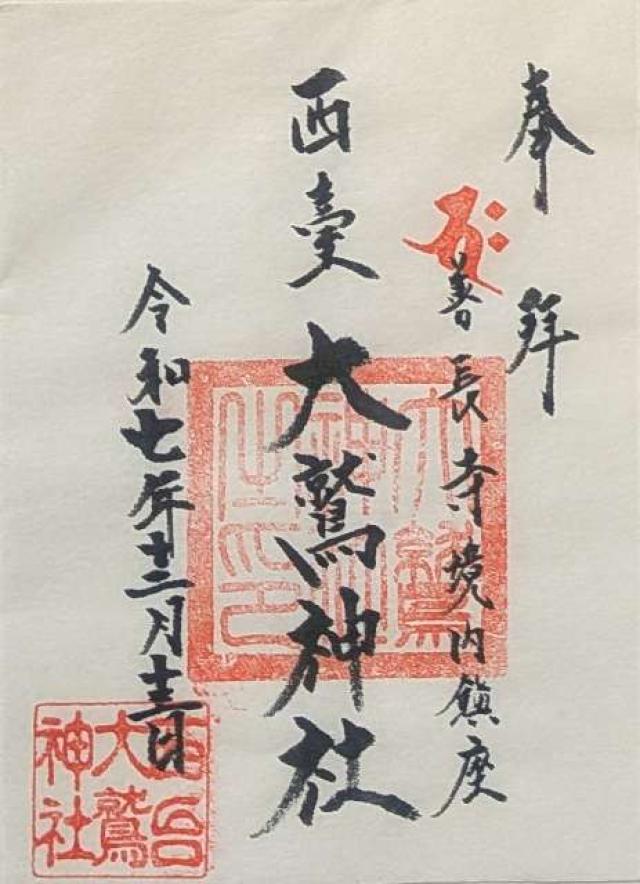 奉拝
善長寺境内鎮座
西臺 大鷲神社
令和七年十二月十三日
大鷲
神社
之印
西台
大鷲
神社